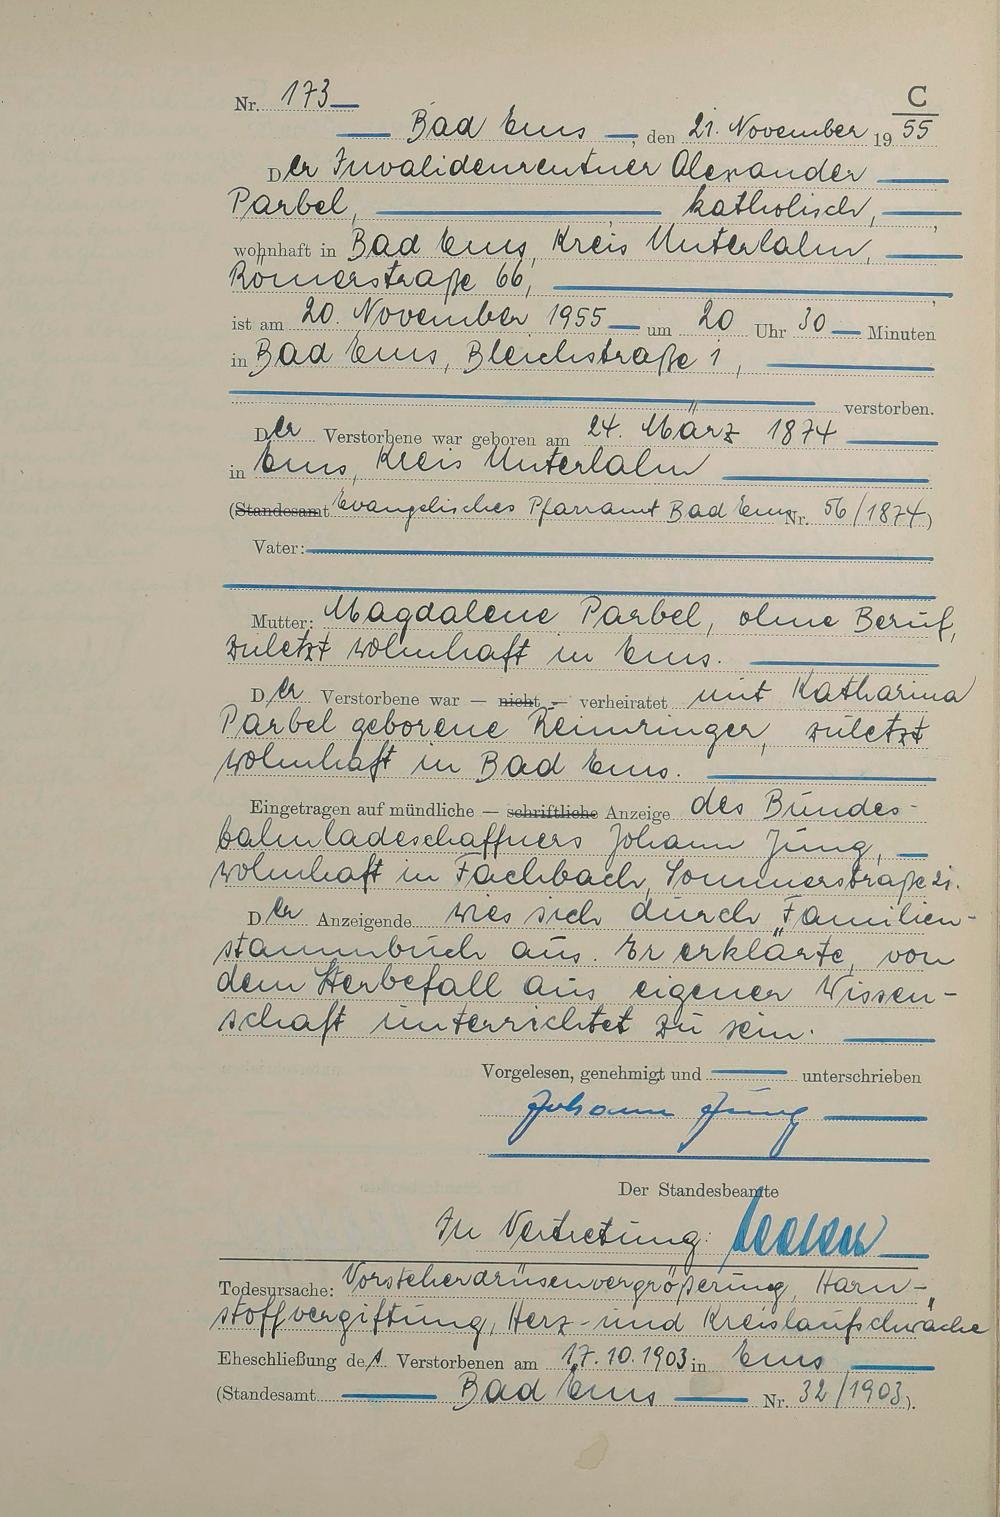 Nr. 173
C
Bad Ems, den 21. November 1955
Der Invalidenrentner Alexander
Parbel, katholisch,
wohnhaft in Bad Ems, Kreis Unterlahn,
Römerstraße 66,
ist am 20. November 1955 um 20 Uhr 30 Minuten
in Bad Ems, Bleichstraße 1,
verstorben.
Der Verstorbene war geboren am 24. März 1874
in Ems, Kreis Unterlahn
(Standesamt Evangelisches Pfarramt Bad Ems Nr. 56/1874)
Vater:
Mutter: Magdalene Parbel, ohne Beruf,
zuletzt wohnhaft in Ems.
Der Verstorbene war — nicht — verheiratet mit Katharina
Parbel geborene Reinringer, zuletzt
wohnhaft in Bad Ems.
Eingetragen auf mündliche — schriftliche Anzeige des Bundes-
bahnladeschaffners Johann Jung,
wohnhaft in Fachbach, Sommerstraße 21.
Der Anzeigende wies sich durch Familien-
stammbuch aus. Er erklärte, von
dem Sterbefall aus eigener Wissen-
schaft unterrichtet zu sein.
Vorgelesen, genehmigt und unterschrieben
Johann Jung
Der Standesbeamte
In Vertretung:
Todesursache: Vorsteherdrüsenvergrößerung, Harn-
stoffvergiftung, Herz- und Kreislaufschwäche
Eheschließung des Verstorbenen am 17.10.1903 in Ems
(Standesamt Bad Ems Nr. 32/1903).